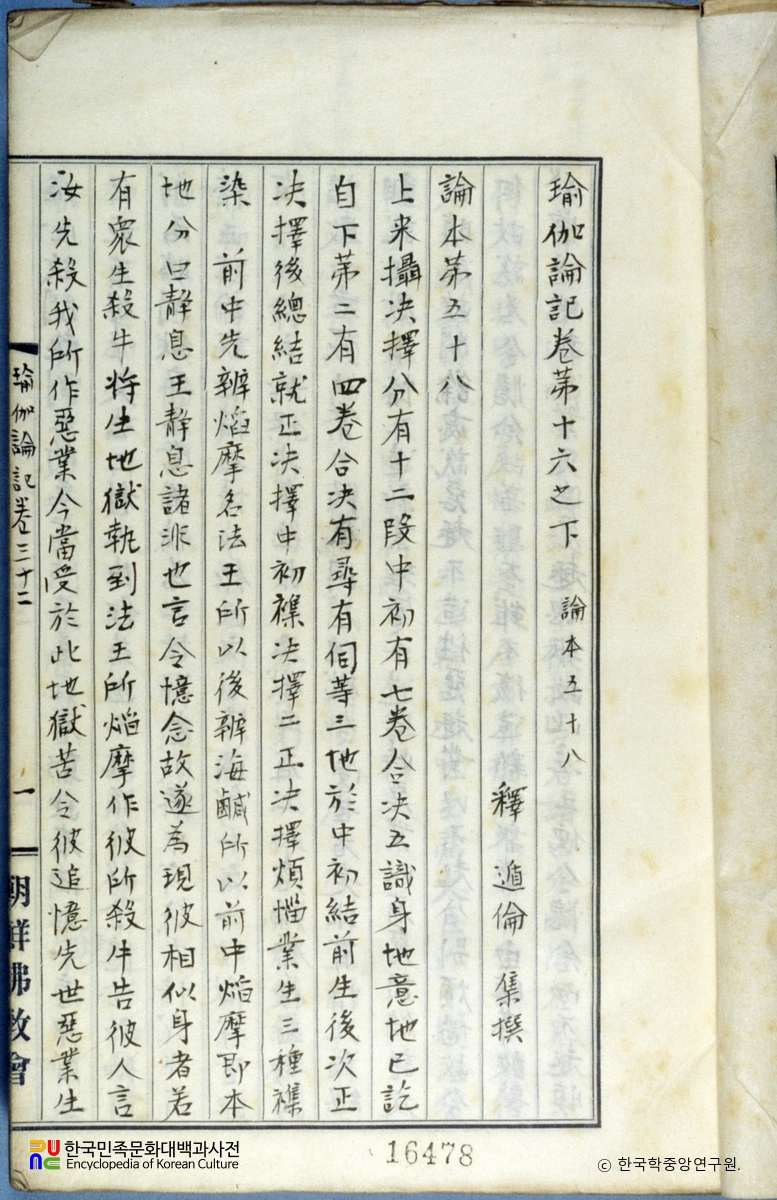 瑜伽論記卷苐十六之下 論本五十八
釋遁倫 集撰
論本苐五十八
上来攝决擇分有十二段中初有七卷合决五識身地意地已訖
自下苐二有四卷合决有尋有伺等三地於中初結前生後次正
决擇後總結就正决擇中初襍决擇二正决擇煩惱業生三種襍
染 前中先辨焰摩名法王所以後辨海鹹所以前中焰摩即本
地分曰靜息王靜息諸非也言令憶念故遂為現彼相似身者若
有衆生殺牛将生地獄執到法王所焰摩作彼所殺牛告彼人言
汝先殺我所作惡業今當受於此地獄苦令彼追憶先世惡業生
瑜伽論記卷三十二
一
朝鮮佛教會
한국민족문화대백과사전
Encyclopedia of Korean Culture
16478
ⓒ 한국학중앙연구원.